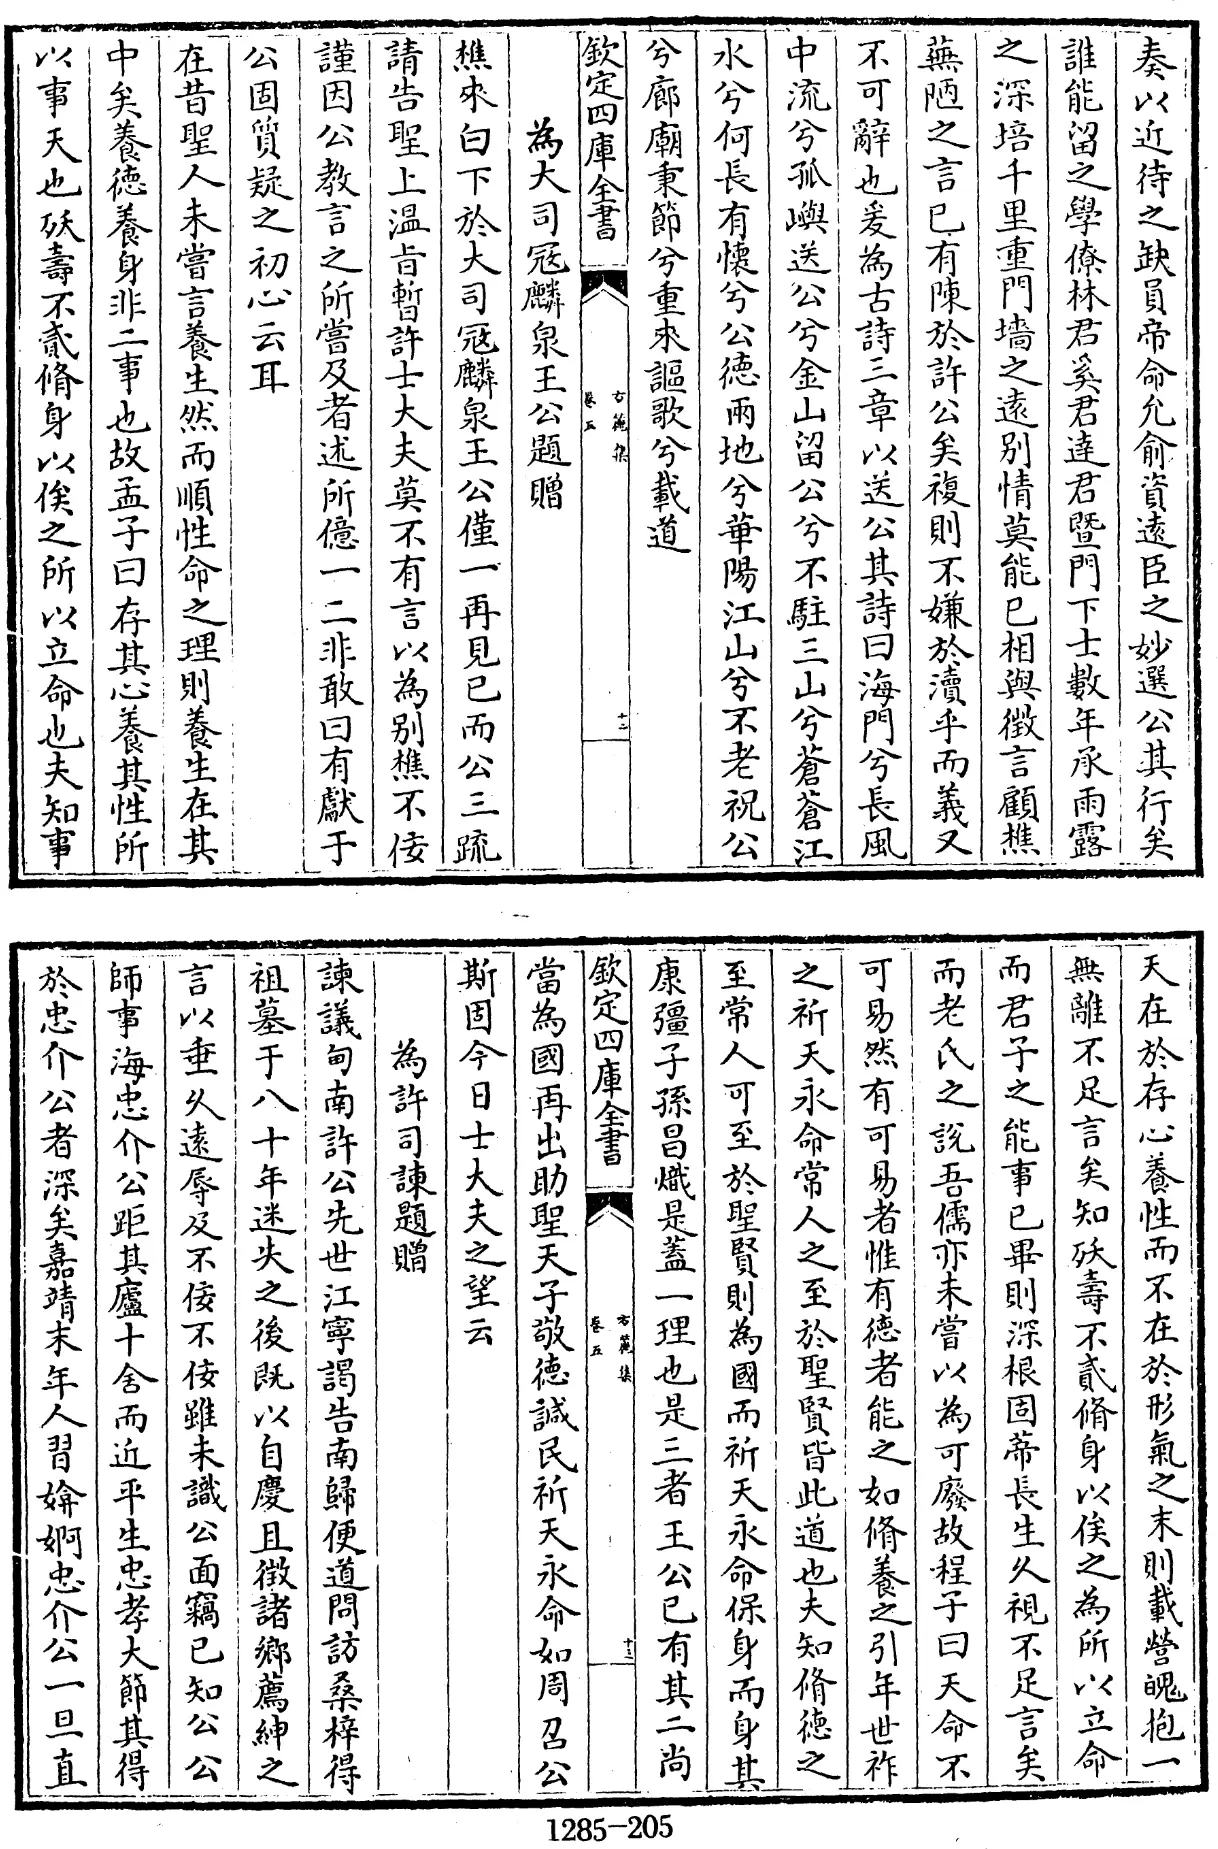 奏以近待之缺員帝命允俞資遠臣之妙選公其行矣
誰能留之學僚林君奚君達君暨門下士數年承雨露
之深培千里重門墻之遠別情莫能已相與徴言顧樵
蕪陋之言已有陳於許公矣複則不嫌於瀆乎而義又
不可辭也爰為古詩三章以送公其詩曰海門兮長風
中流兮孤嶼送公兮金山留公兮不駐三山兮蒼蒼江
水兮何長有懷兮公德兩地兮華陽江山兮不老祝公
兮廊廟秉節兮重來謳歌兮載道
欽定四庫全書
方麓集
卷五
十二
為大司冦麟泉王公題贈
樵來白下於大司冦麟泉王公僅一再見已而公三疏
請告聖上温旨暫許士大夫莫不有言以為别樵不佞
謹因公教言之所嘗及者述所億一二非敢曰有獻于
公固質疑之初心云耳
在昔聖人未嘗言養生然而順性命之理則養生在其
中矣養德養身非二事也故孟子曰存其心養其性所
以事天也殀壽不貳脩身以俟之所以立命也夫知事
天在於存心養性而不在於形氣之末則載營魄抱一
無離不足言矣知殀壽不貳脩身以俟之為所以立命
而君子之能事已畢則深根固蒂長生久視不足言矣
而老氏之說吾儒亦未嘗以為可廢故程子曰天命不
可易然有可易者惟有德者能之如脩養之引年世祚
之祈天永命常人之至於聖賢皆此道也夫知脩德之
至常人可至於聖賢則為國而祈天永命保身而身其
康彊子孫昌熾是蓋一理也是三者王公已有其二尚
欽定四庫全書
方麓集
卷五
十三
當為國再出助聖天子敬德諴民祈天永命如周召公
斯固今日士大夫之望云
為許司諫題贈
諫議甸南許公先世江寧謁告南歸便道問訪桑梓得
祖墓于八十年迷失之後既以自慶且徴諸鄉薦紳之
言以垂久遠辱及不佞不佞雖未識公面竊已知公公
師事海忠介公距其廬十舍而近平生忠孝大節其得
於忠介公者深矣嘉靖末年人習媕婀忠介公一旦直
1285—205